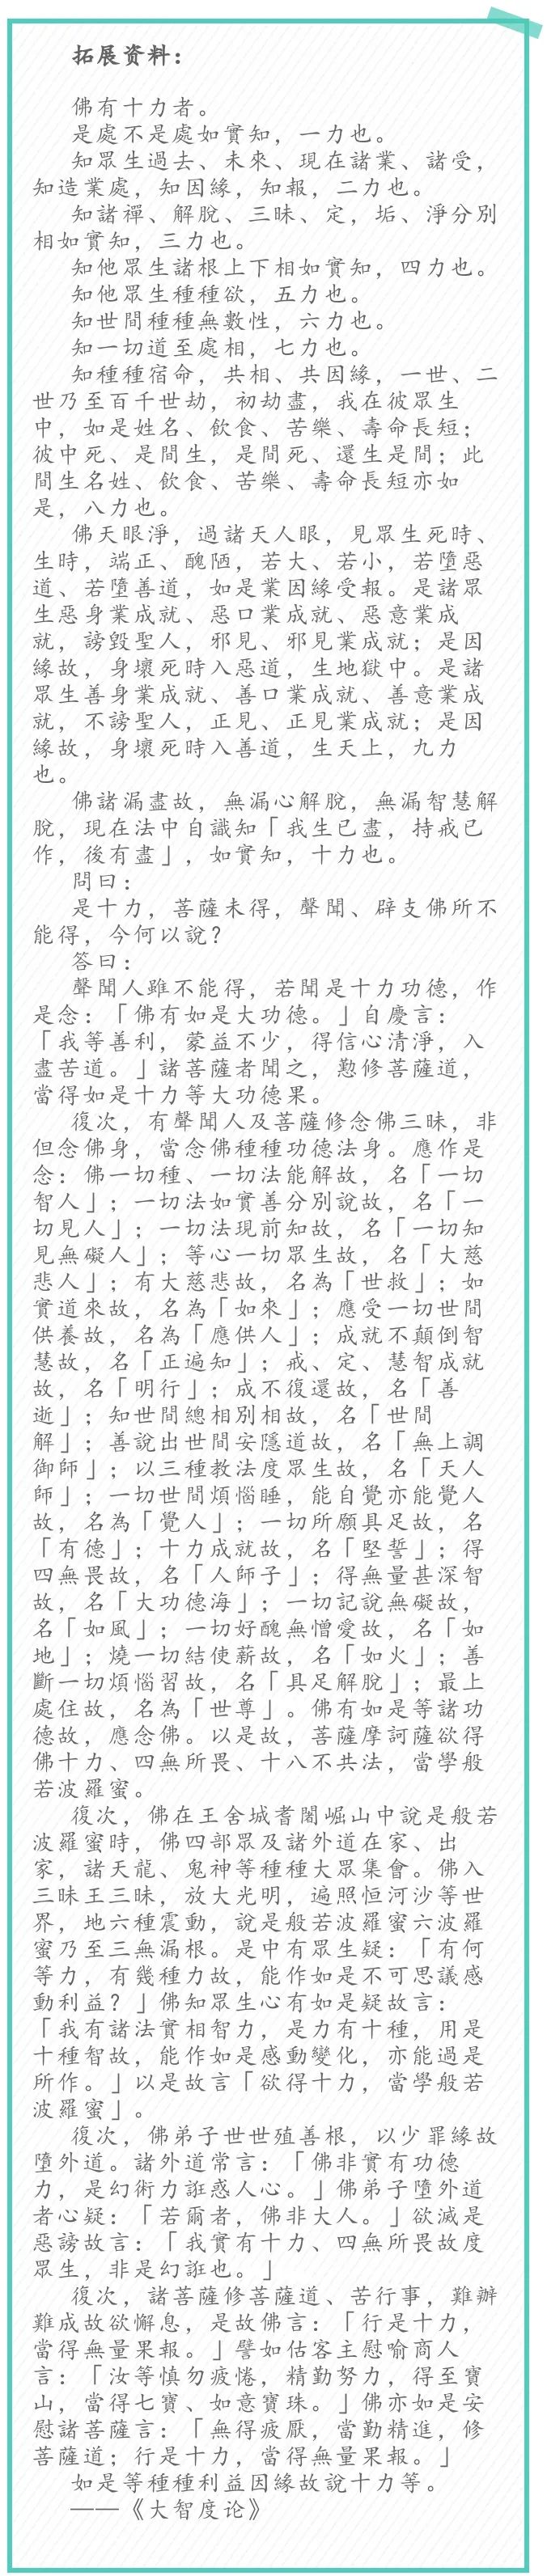 拓展资料：
佛有十力者。
是處不是處如實知，一力也。
知眾生過去、未來、現在諸業、諸受，
知造業處，知因緣，知報，二力也。
知諸禪、解脫、三昧、定，垢、淨分別
相如實知，三力也。
知他眾生諸根上下相如實知，四力也。
知他眾生種種欲，五力也。
知世間種種無數性，六力也。
知一切道至處相，七力也。
知種種宿命，共相、共因緣，一世、二
世乃至百千世劫，初劫盡，我在彼眾生
中，如是姓名、飲食、苦樂、壽命長短；
彼中死、是間生，是間死、還生是間；此
間生名姓、飲食、苦樂、壽命長短亦如
是，八力也。
佛天眼淨，過諸天人眼，見眾生死時、
生時，端正、醜陋，若大、若小，若墮惡
道、若墮善道，如是業因緣受報。是諸眾
生惡身業成就、惡口業成就、惡意業成
就，謗毀聖人，邪見、邪見業成就；是因
緣故，身壞死時入惡道，生地獄中。是諸
眾生善身業成就、善口業成就、善意業成
就，不謗聖人，正見、正見業成就；是因
緣故，身壞死時入善道，生天上，九力
也。
佛諸漏盡故，無漏心解脫，無漏智慧解
脫，現在法中自識知「我生已盡，持戒已
作，後有盡」，如實知，十力也。
問曰：
是十力，菩薩未得，聲聞、辟支佛所不
能得，今何以說？
答曰：
聲聞人雖不能得，若聞是十力功德，作
是念：「佛有如是大功德。」自慶言：
「我等善利，蒙益不少，得信心清淨，入
盡苦道。」諸菩薩者聞之，懃修菩薩道，
當得如是十力等大功德果。
復次，有聲聞人及菩薩修念佛三昧，非
但念佛身，當念佛種種功德法身。應作是
念：佛一切種、一切法能解故，名「一切
智人」；一切法如實善分別說故，名「一
切見人」；一切法現前知故，名「一切知
見無礙人」；等心一切眾生故，名「大慈
悲人」；有大慈悲故，名為「世救」；如
實道來故，名為「如來」；應受一切世間
供養故，名為「應供人」；成就不顛倒智
慧故，名「正遍知」；戒、定、慧智成就
故，名「明行」；成不復還故，名「善
逝」；知世間總相別相故，名「世間
解」；善說出世間安隱道故，名「無上調
御師」；以三種教法度眾生故，名「天人
師」；一切世間煩惱睡，能自覺亦能覺人
故，名為「覺人」；一切所願具足故，名
「有德」；十力成就故，名「堅誓」；得
四無畏故，名「人師子」；得無量甚深智
故，名「大功德海」；一切記說無礙故，
名「如風」；一切好醜無憎愛故，名「如
地」；燒一切結使薪故，名「如火」；善
斷一切煩惱習故，名「具足解脫」；最上
處住故，名為「世尊」。佛有如是等諸功
德故，應念佛。以是故，菩薩摩訶薩欲得
佛十力、四無所畏、十八不共法，當學般
若波羅蜜。
復次，佛在王舍城耆闍崛山中說是般若
波羅蜜時，佛四部眾及諸外道在家、出
家，諸天龍、鬼神等種種大眾集會。佛入
三昧王三昧，放大光明，遍照恒河沙等世
界，地六種震動，說是般若波羅蜜六波羅
蜜乃至三無漏根。是中有眾生疑：「有何
等力，有幾種力故，能作如是不可思議感
動利益？」佛知眾生心有如是疑故言：
「我有諸法實相智力，是力有十種，用是
十種智故，能作如是感動變化，亦能過是
所作。」以是故言「欲得十力，當學般若
波羅蜜」。
復次，佛弟子世世殖善根，以少罪緣故
墮外道。諸外道常言：「佛非實有功德
力，是幻術力誑惑人心。」佛弟子墮外道
者心疑：「若爾者，佛非大人。」欲滅是
惡謗故言：「我實有十力、四無所畏故度
眾生，非是幻誑也。」
復次，諸菩薩修菩薩道、苦行事，難辦
難成故欲懈息，是故佛言：「行是十力，
當得無量果報。」譬如估客主慰喻商人
言：「汝等慎勿疲惓，精勤努力，得至寶
山，當得七寶、如意寶珠。」佛亦如是安
慰諸菩薩言：「無得疲厭，當勤精進，修
菩薩道；行是十力，當得無量果報。」
如是等種種利益因緣故說十力等。
——《大智度论》